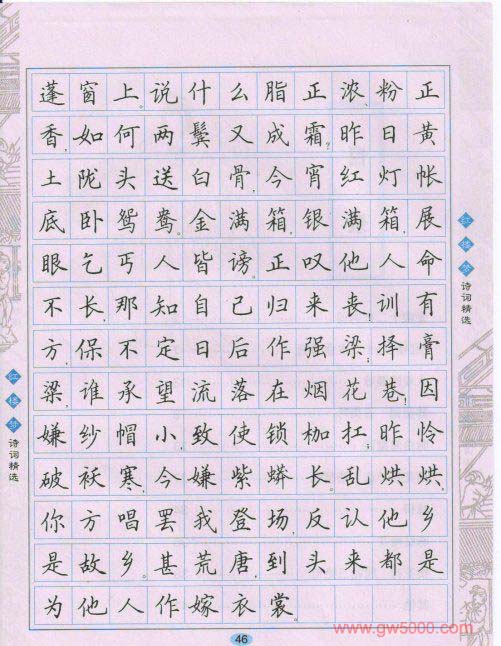 蓬窗上。说什么脂正浓、粉正
香，如何两鬓又成霜？昨日黄
土陇头送白骨，今宵红灯帐
底卧鸳鸯。金满箱，银满箱，展
眼乞丐人皆谤。正叹他人命
不长，那知自己归来丧！训有
方，保不定日后作强梁；择膏
梁，谁承望流落在烟花巷！因
嫌纱帽小，致使锁枷扛；昨怜
破袄寒，今嫌紫蟒长。乱烘烘，
你方唱罢我登场，反认他乡
是故乡。甚荒唐，到头来都是
为他人作嫁衣裳。
红楼梦诗词精选
红楼梦诗词精选
46
www.gw5000.com